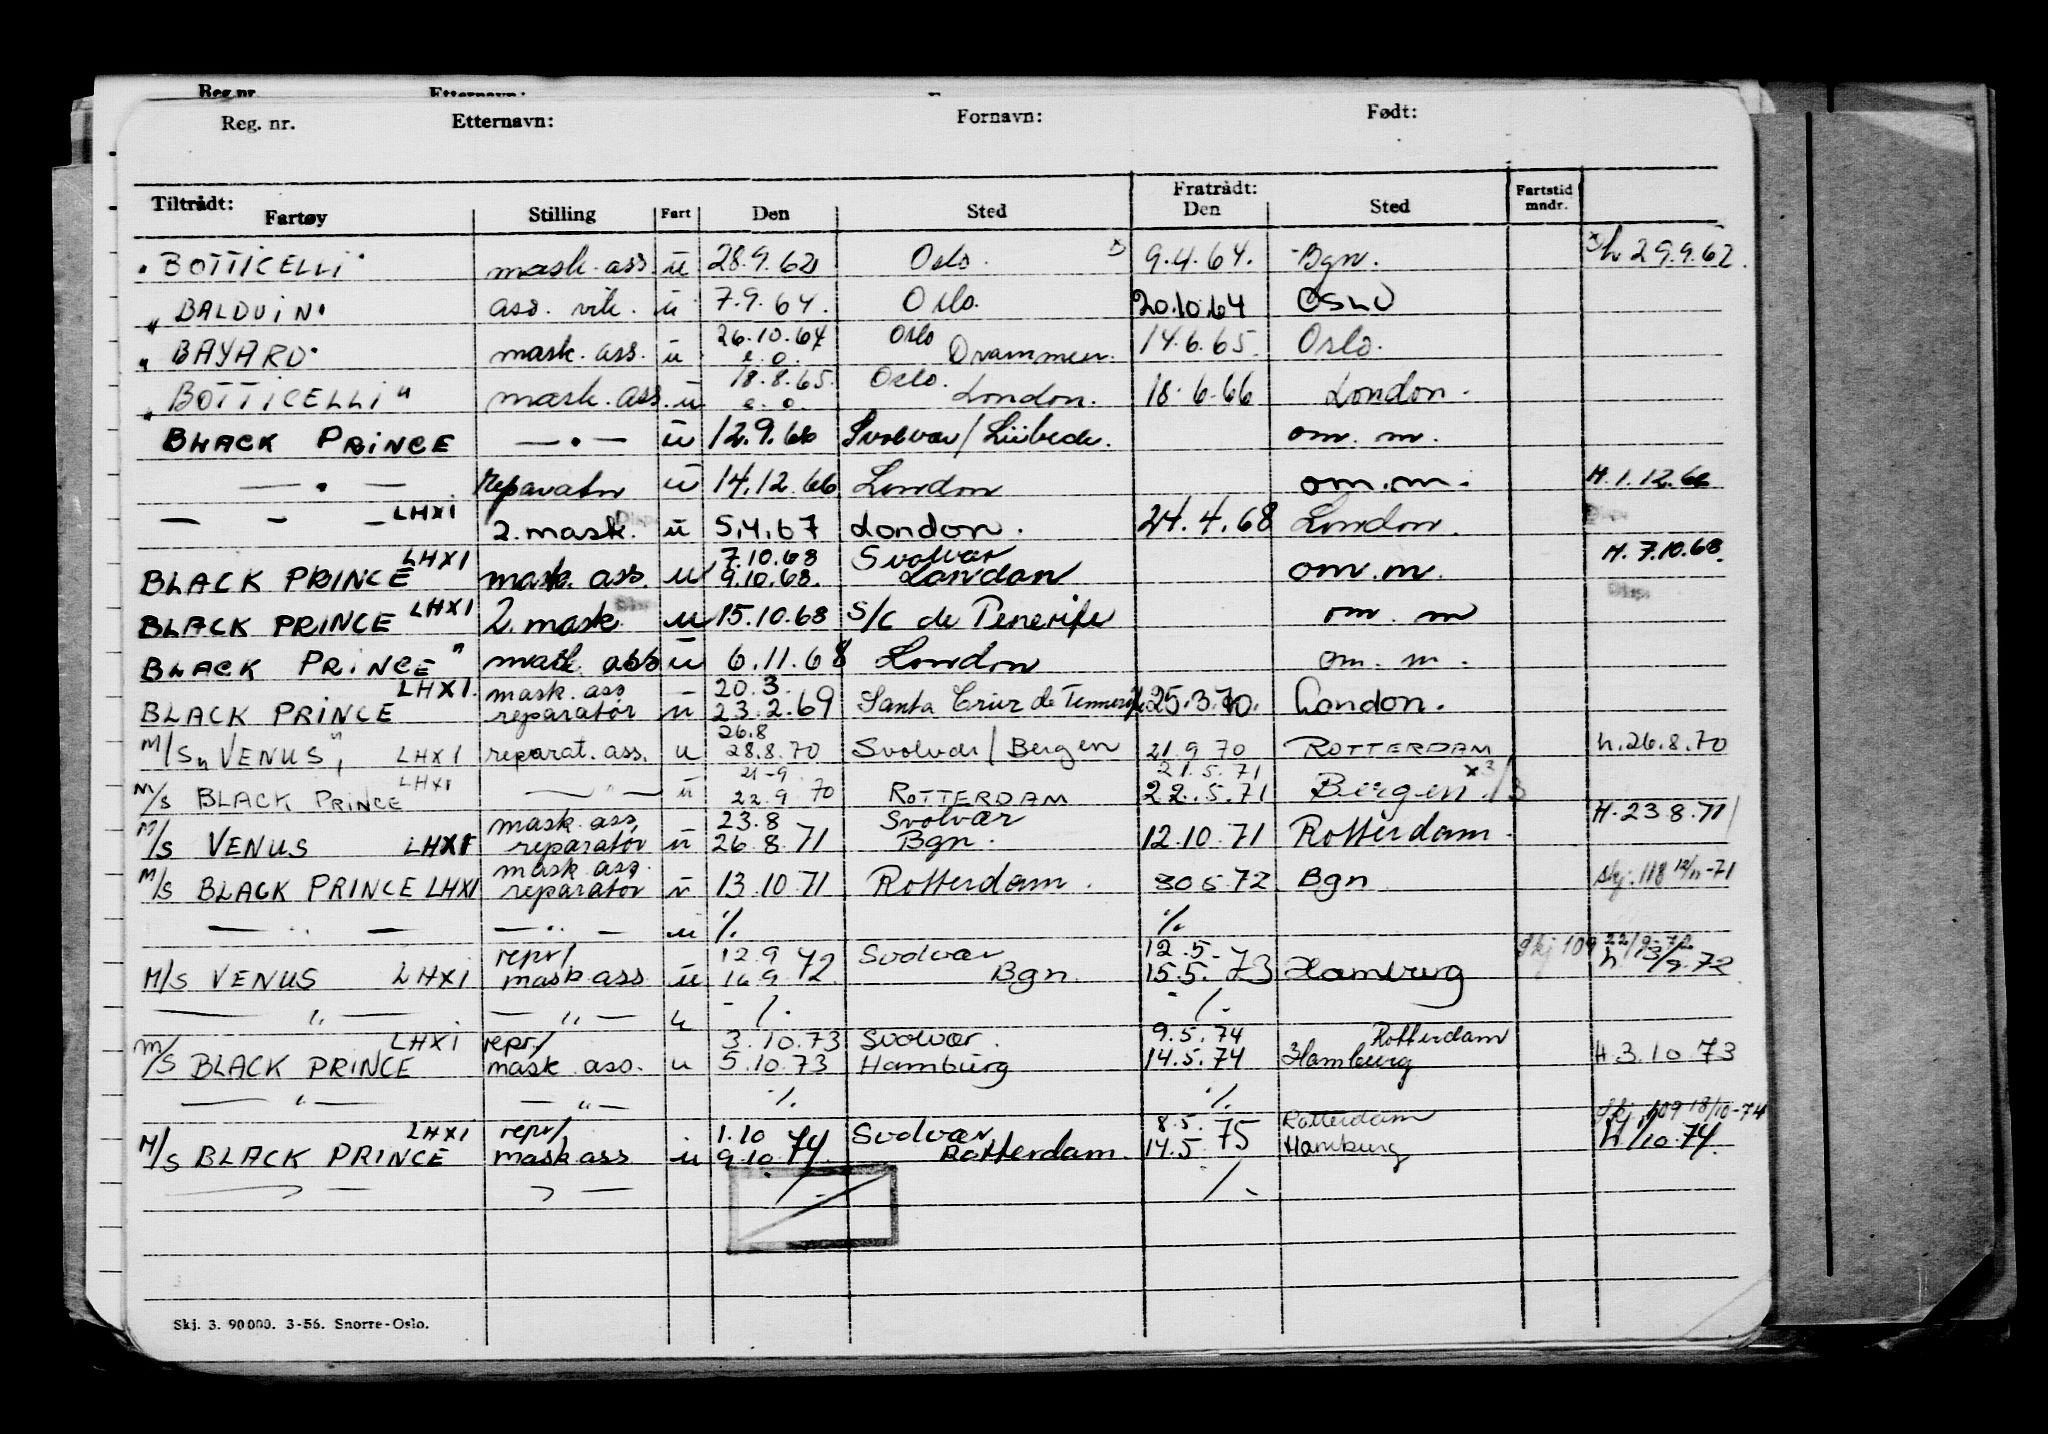 Reg. nr. Etternavn:
Reg. nr. Etternavn: Fornavn: Født:
Tiltrådt: Fratrådt:
Fartøy Stilling Fart Den Sted Den Sted Fartstid mndr.
"BOTTICELLI" mask. ass ū 28.9.62 Oslo. x) 9.4.64. Bgn. x) h 29.9.62.
"BALDUIN" ass. vik. ū 7.9.64. Oslo. 20.10.64 OSLO
"BAYARD" mask. ass. ū 26.10.64 e.o. Oslo Drammen. 14.6.65. Oslo.
"BOTTICELLI" mask. ass. ū 18.8.65. e.o. Oslo. London. 18.6.66 London.
BLACK PRINCE —.— ū 12.9.66 Svolvær/Lübeck. om. m.
— . — reparatør ū 14.12.66 London om.m. H.1.12.66
— - — LHXI 2. mask. ū 5.4.67 London. 24.4.68 London.
BLACK PRINCE LHXI mask. ass. u 7.10.68 9.10.68. Svolvær London om.m. H. 7.10.68.
BLACK PRINCE LHXI 2. mask u 15.10.68 S/C de Tenerife om. m
BLACK PRINCE" mask. ass ū 6.11.68 London om. m.
BLACK PRINCE LHXI. mask. ass reparatør ū 20.3. 23.2.69 Santa Cruz de Tennerife 25.3.70. London.
M/S "VENUS" LHXI reparat. ass. u 26.8 28.8.70 Svolvær/Bergen 21.9.70 ROTTERDAM h.26.8.70
M/S BLACK PRINCE LHXI — " — ū 21-9 22.9 70 ROTTERDAM 21.5.71 22.5.71 Bergen x3/3
M/S VENUS LHXI mask. ass reparatør ū 23.8 26.8.71 Svolvær Bgn. 12.10.71 Rotterdam. H.23.8.71
M/S BLACK PRINCE LHXI mask. ass. reparatør ū 13.10.71 Rotterdam. 30 5 72 Bgn skj. 118 12/11-71
— " — — " — u ./. ./.
M/S VENUS LHXI repr/ mask ass ū 12.9 16.9 72. Svolvær Bgn. 12.5. 15.5. 73 Hamburg Skj 109 22/9-72 h. 13/9.72
— " — — " — u ./. ./.
M/S BLACK PRINCE LHXI repr/ mask ass. u 3.10.73 5.10.73 Svolvær. Hamburg 9.5.74 14.5.74 Rotterdam Hamburg H 3.10.73
— " — — " — ./. ./.
M/S BLACK PRINCE LHXI repr/ mask ass ū 1.10 9.10 74. Svolvær Rotterdam. 8.5. 14.5. 75 Rotterdam Hamburg Skj. 109 18/10-74 h 1/10.74.
— " — — " — ./. ./.
Skj. 3. 90000. 3-56. Snorre-Oslo.